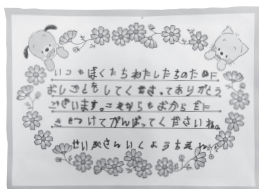 いつもぼくたちわたしたちのために
おしごとをしてくださってありがとう
ございます。これからもおからだに
きをつけてがんばってくださいね。
せいかさんいくようちえん